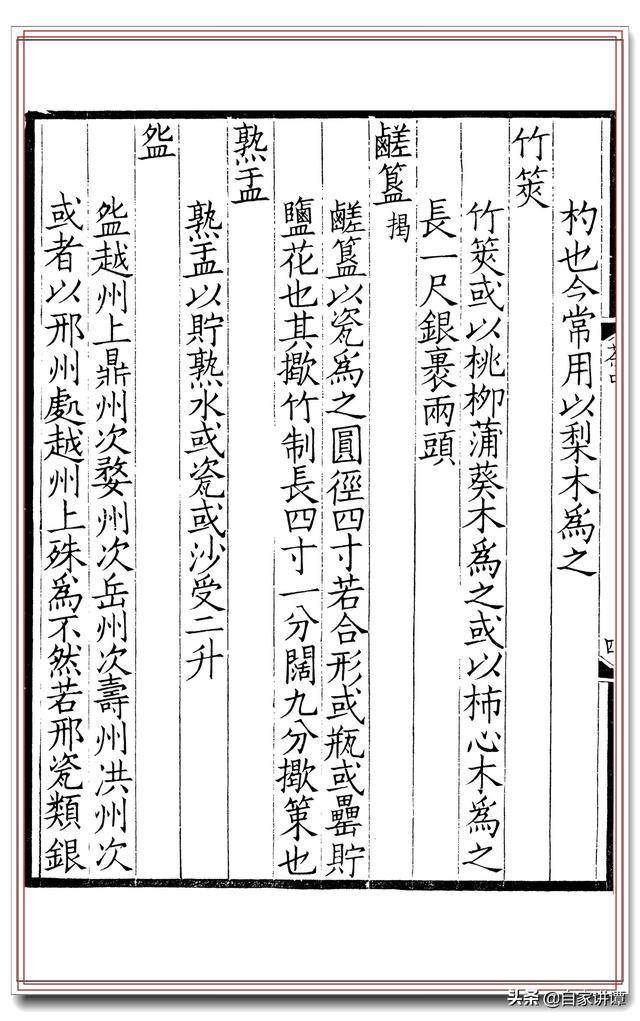 杓也今常用以梨木爲之
竹筴
竹筴或以桃柳蒲葵木爲之或以柿心木爲之
長一尺銀裹兩頭
鹺簋 揭
鹺簋以瓷爲之圓徑四寸若合形或瓶或罍貯
鹽花也其撳竹制長四寸一分闊九分撳策也
熟盂
熟盂以貯熟水或瓷或沙受二升
盌
盌越州上鼎州次婺州次岳州次壽州洪州次
或者以邢州處越州上殊爲不然若邢瓷類銀
头条 @自家讲谭